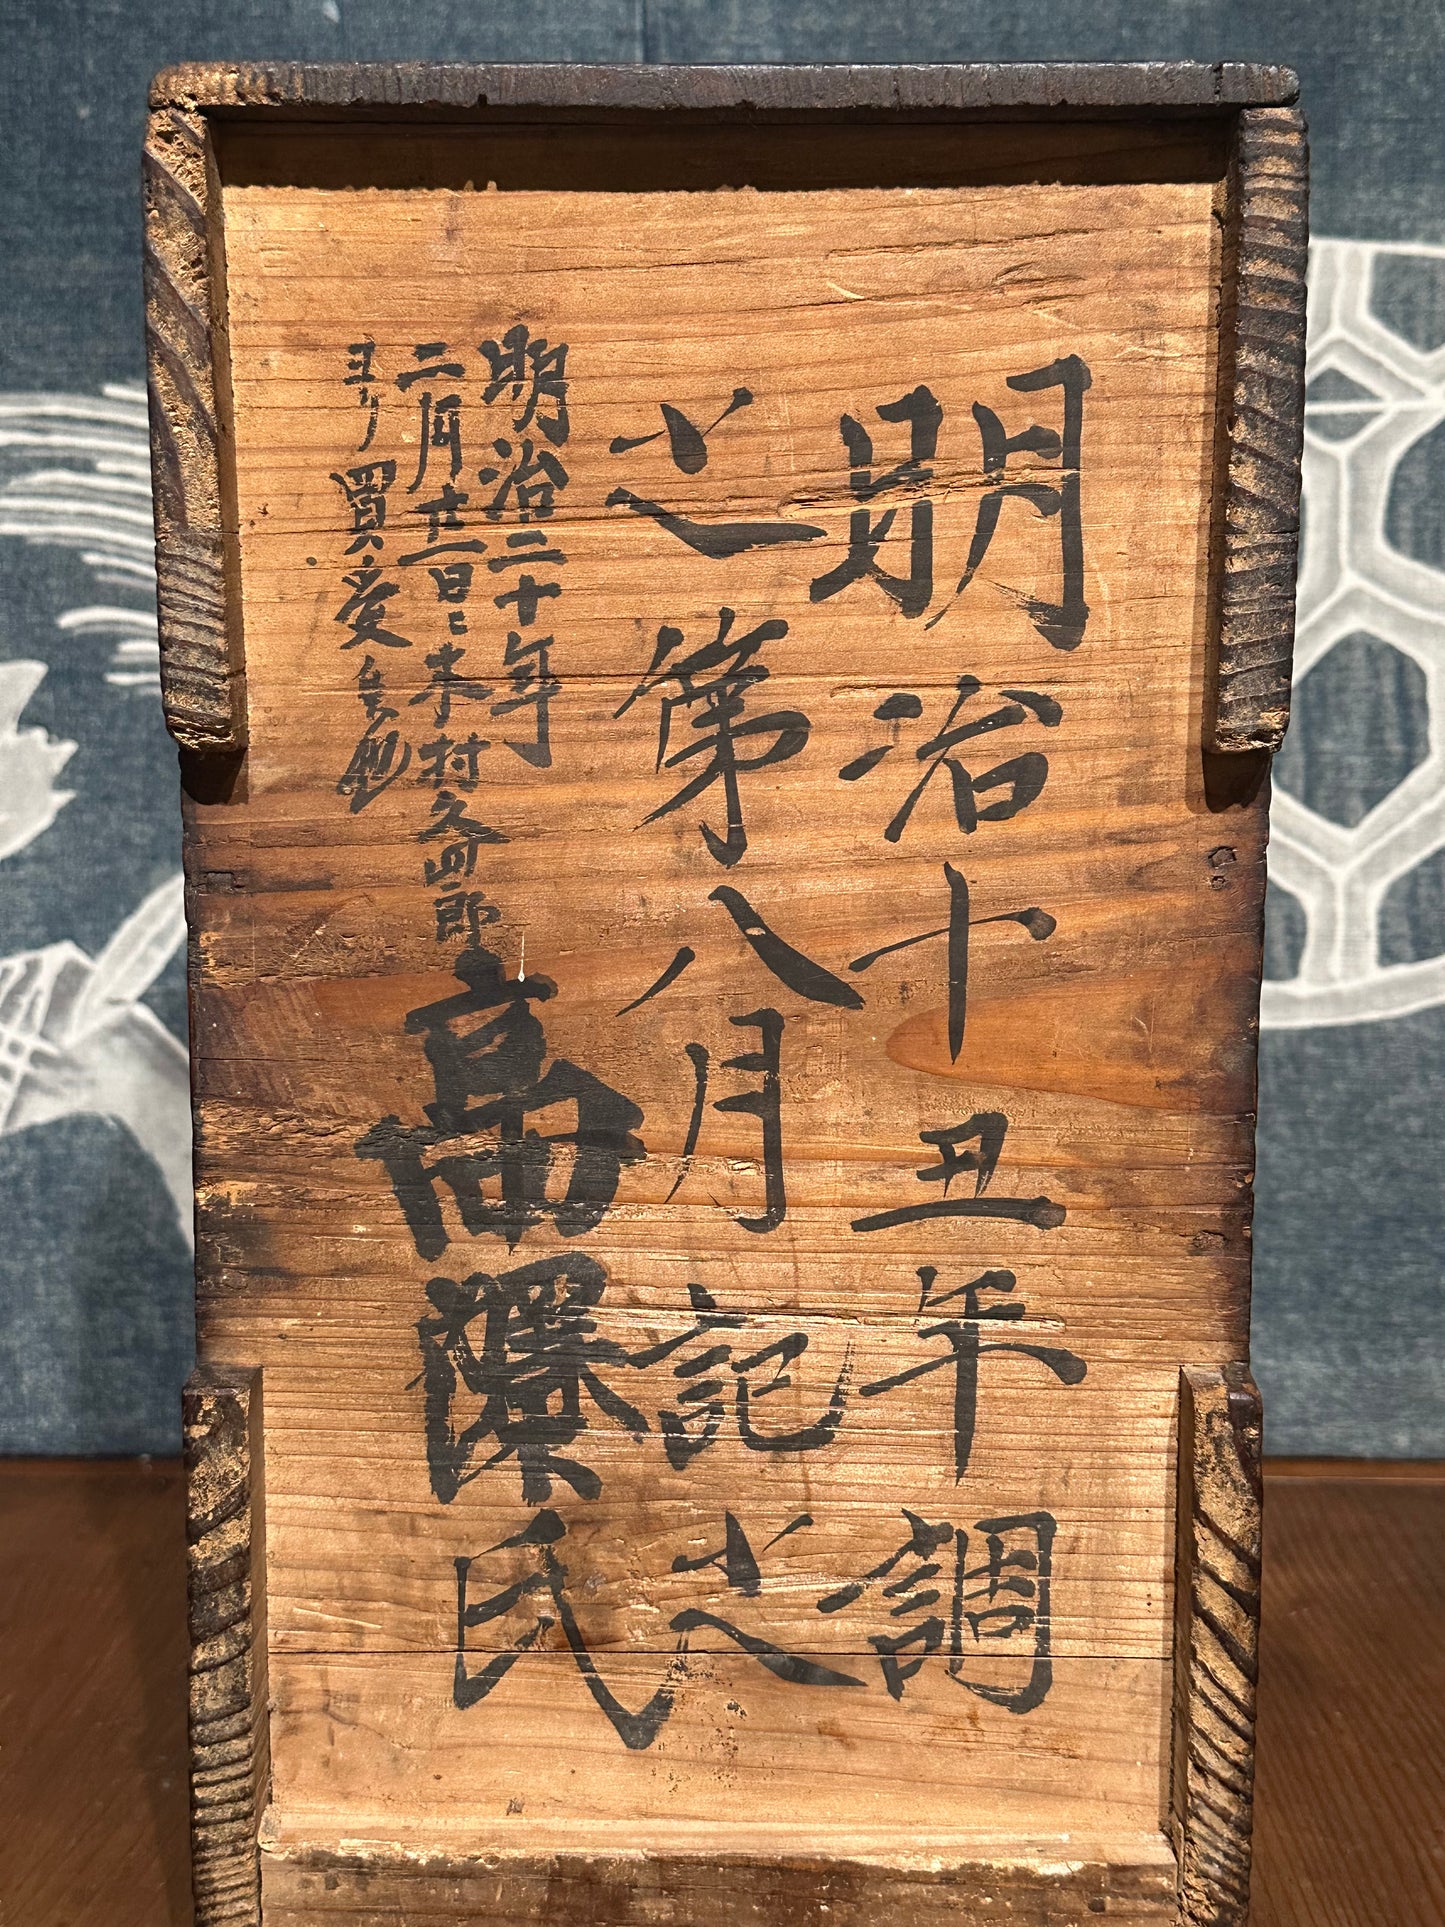 明治十丑年調
之第八月記之
高澤氏
明治二十年
二月廿一日ニ木村久四郎
ヨリ買受